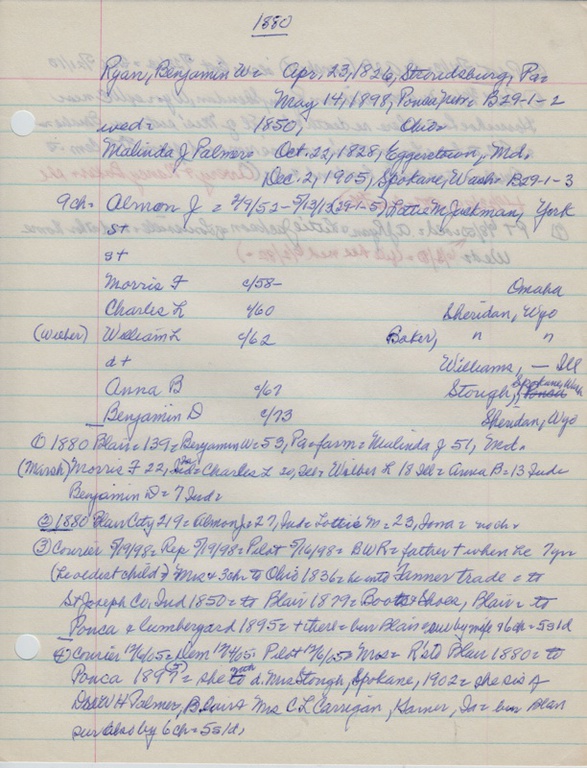 1880
Ryan, Benjamin W = Apr. 23, 1826, Stroudsburg, Pa=
May 14, 1898, Ponca, Nebr = B29-1-2
wed = 1850, Ohio=
Malinda J Palmer = Oct. 22, 1828, Eggerstown, Md.
Dec. 2, 1905, Spokane, Wash = B29-1-3
9ch = Almon J = 2/9/52 - 5/13/13 (29-1-5) Lottie M Jackman, York
st
st
Morris F c/58- Omaha
Charles L c/60 Sheridan, Wyo
(Wilber) William L c/62 Baker, " "
dt
Williams, — Ill
Anna B c/67 Stough, Spokane, Wash
Benjamin D c/73 Sheridan, Wyo
① 1880 Blair = 139 = Benjamin W = 53, Pa = farm = Malinda J 51, Md.
(Marsh) Morris F 22, = Charles L 20, Ill = Wilber L 18 Ill = Anna B = 13 Ind =
Benjamin D = 7 Ind =
② 1880 Blair City 219 = Almon J = 27, Ind = Lottie M = 23, Iowa = no ch =
③ Courier 5/19/98 = Rep 5/19/98 = Pilot 5/16/98 = BWR = father + when he 7yr
(he oldest child) Mrs + 3ch to Ohio 1836 = he into Tanner trade = to
St Joseph Co, Ind 1850 = to Blair 1879 = Boots + Shoes, Blair = to
Ponca + lumberyard 1895 = + there = bur Blair = sur by wife + 6ch = 5s1d
④ Courier 12/6/05 = Dem 12/7/05 Pilot 12/6/05 = Mrs = R's to Blair 1880 = to
Ponca = she to with d. Mrs Stough, Spokane, 1902 = she sis of
W H Palmer, Blair + Mrs C L Carrigan, Garner, Ia = bur Blair
sur also by 6ch = 5s1d,